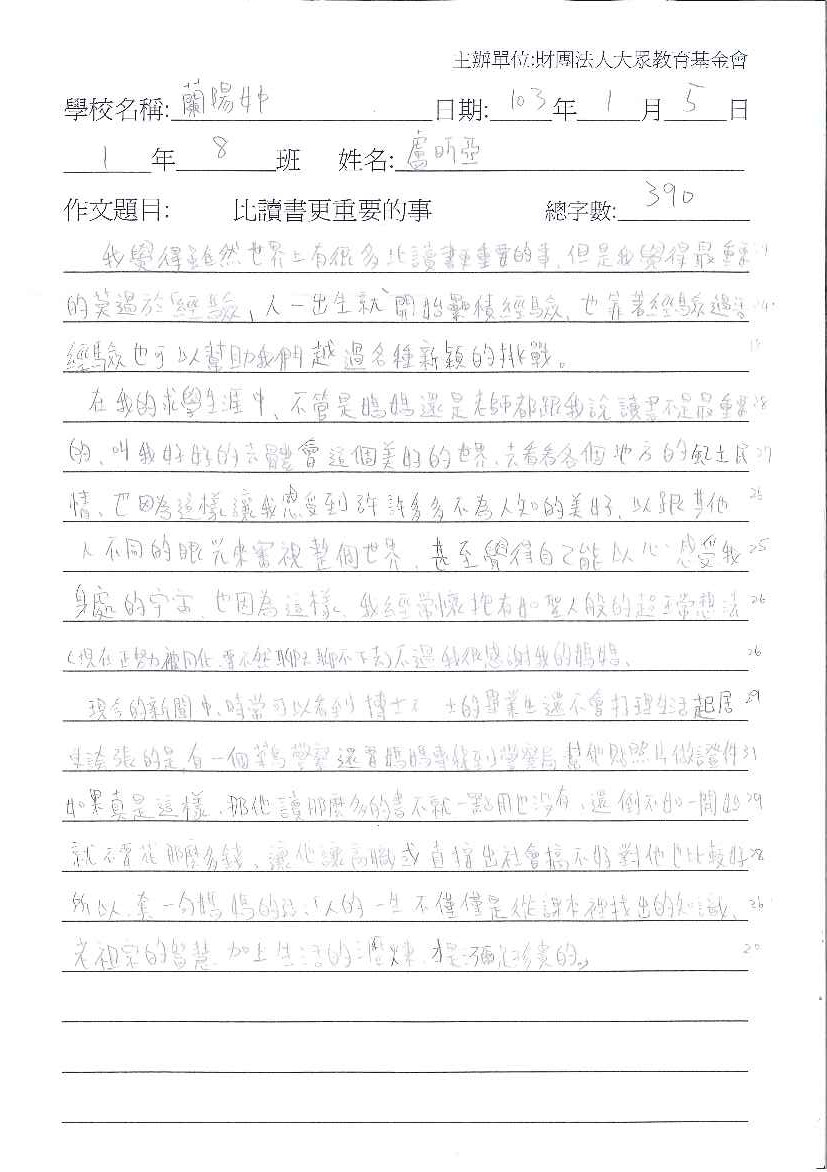 主辦單位:財團法人大眾教育基金會
學校名稱: 蘭陽女中 日期: 103 年 1 月 5 日
1 年 8 班 姓名: 盧昕亞
作文題目: 比讀書更重要的事 總字數: 390
我覺得雖然世界上有很多比讀書更重要的事,但是我覺得最重要
的莫過於「經驗」人一出生就開始累積經驗、也靠著經驗過活
經驗也可以幫助我們越過各種新穎的挑戰。 15
在我的求學生涯中、不管是媽媽還是老師都跟我說讀書不是最重要 28
的、叫我好好的去體會這個美好的世界、去看看各個地方的風土民 27
情、也因為這樣讓我感受到許許多多不為人知的美好、以跟其他 25
人不同的眼光來審視整個世界、甚至覺得自己能以心感受我 25
身處的宇宙、也因為這樣、我經常懷抱有如聖人般的超正常想法 26
(現在正努力被同化、要不然聊天聊不下去)不過我很感謝我的媽媽、 26
現今的新聞中、時常可以看到博士 士的畢業生還不會打理生活起居 29
更誇張的是,有一個菜鳥警察還要媽媽專程到警察局幫他貼照片做證件 31
如果真是這樣、那他讀那麼多的書不就一點用也沒有、還倒不如一開始 29
就不要花那麼多錢、讓他讀高職或直接出社會搞不好對他也比較好 28
所以、套一句媽媽的話、「人的一生不僅僅是從課本裡找出的知識、 26
老祖宗的智慧、加上生活的歷練、才是彌足珍貴的。」 20